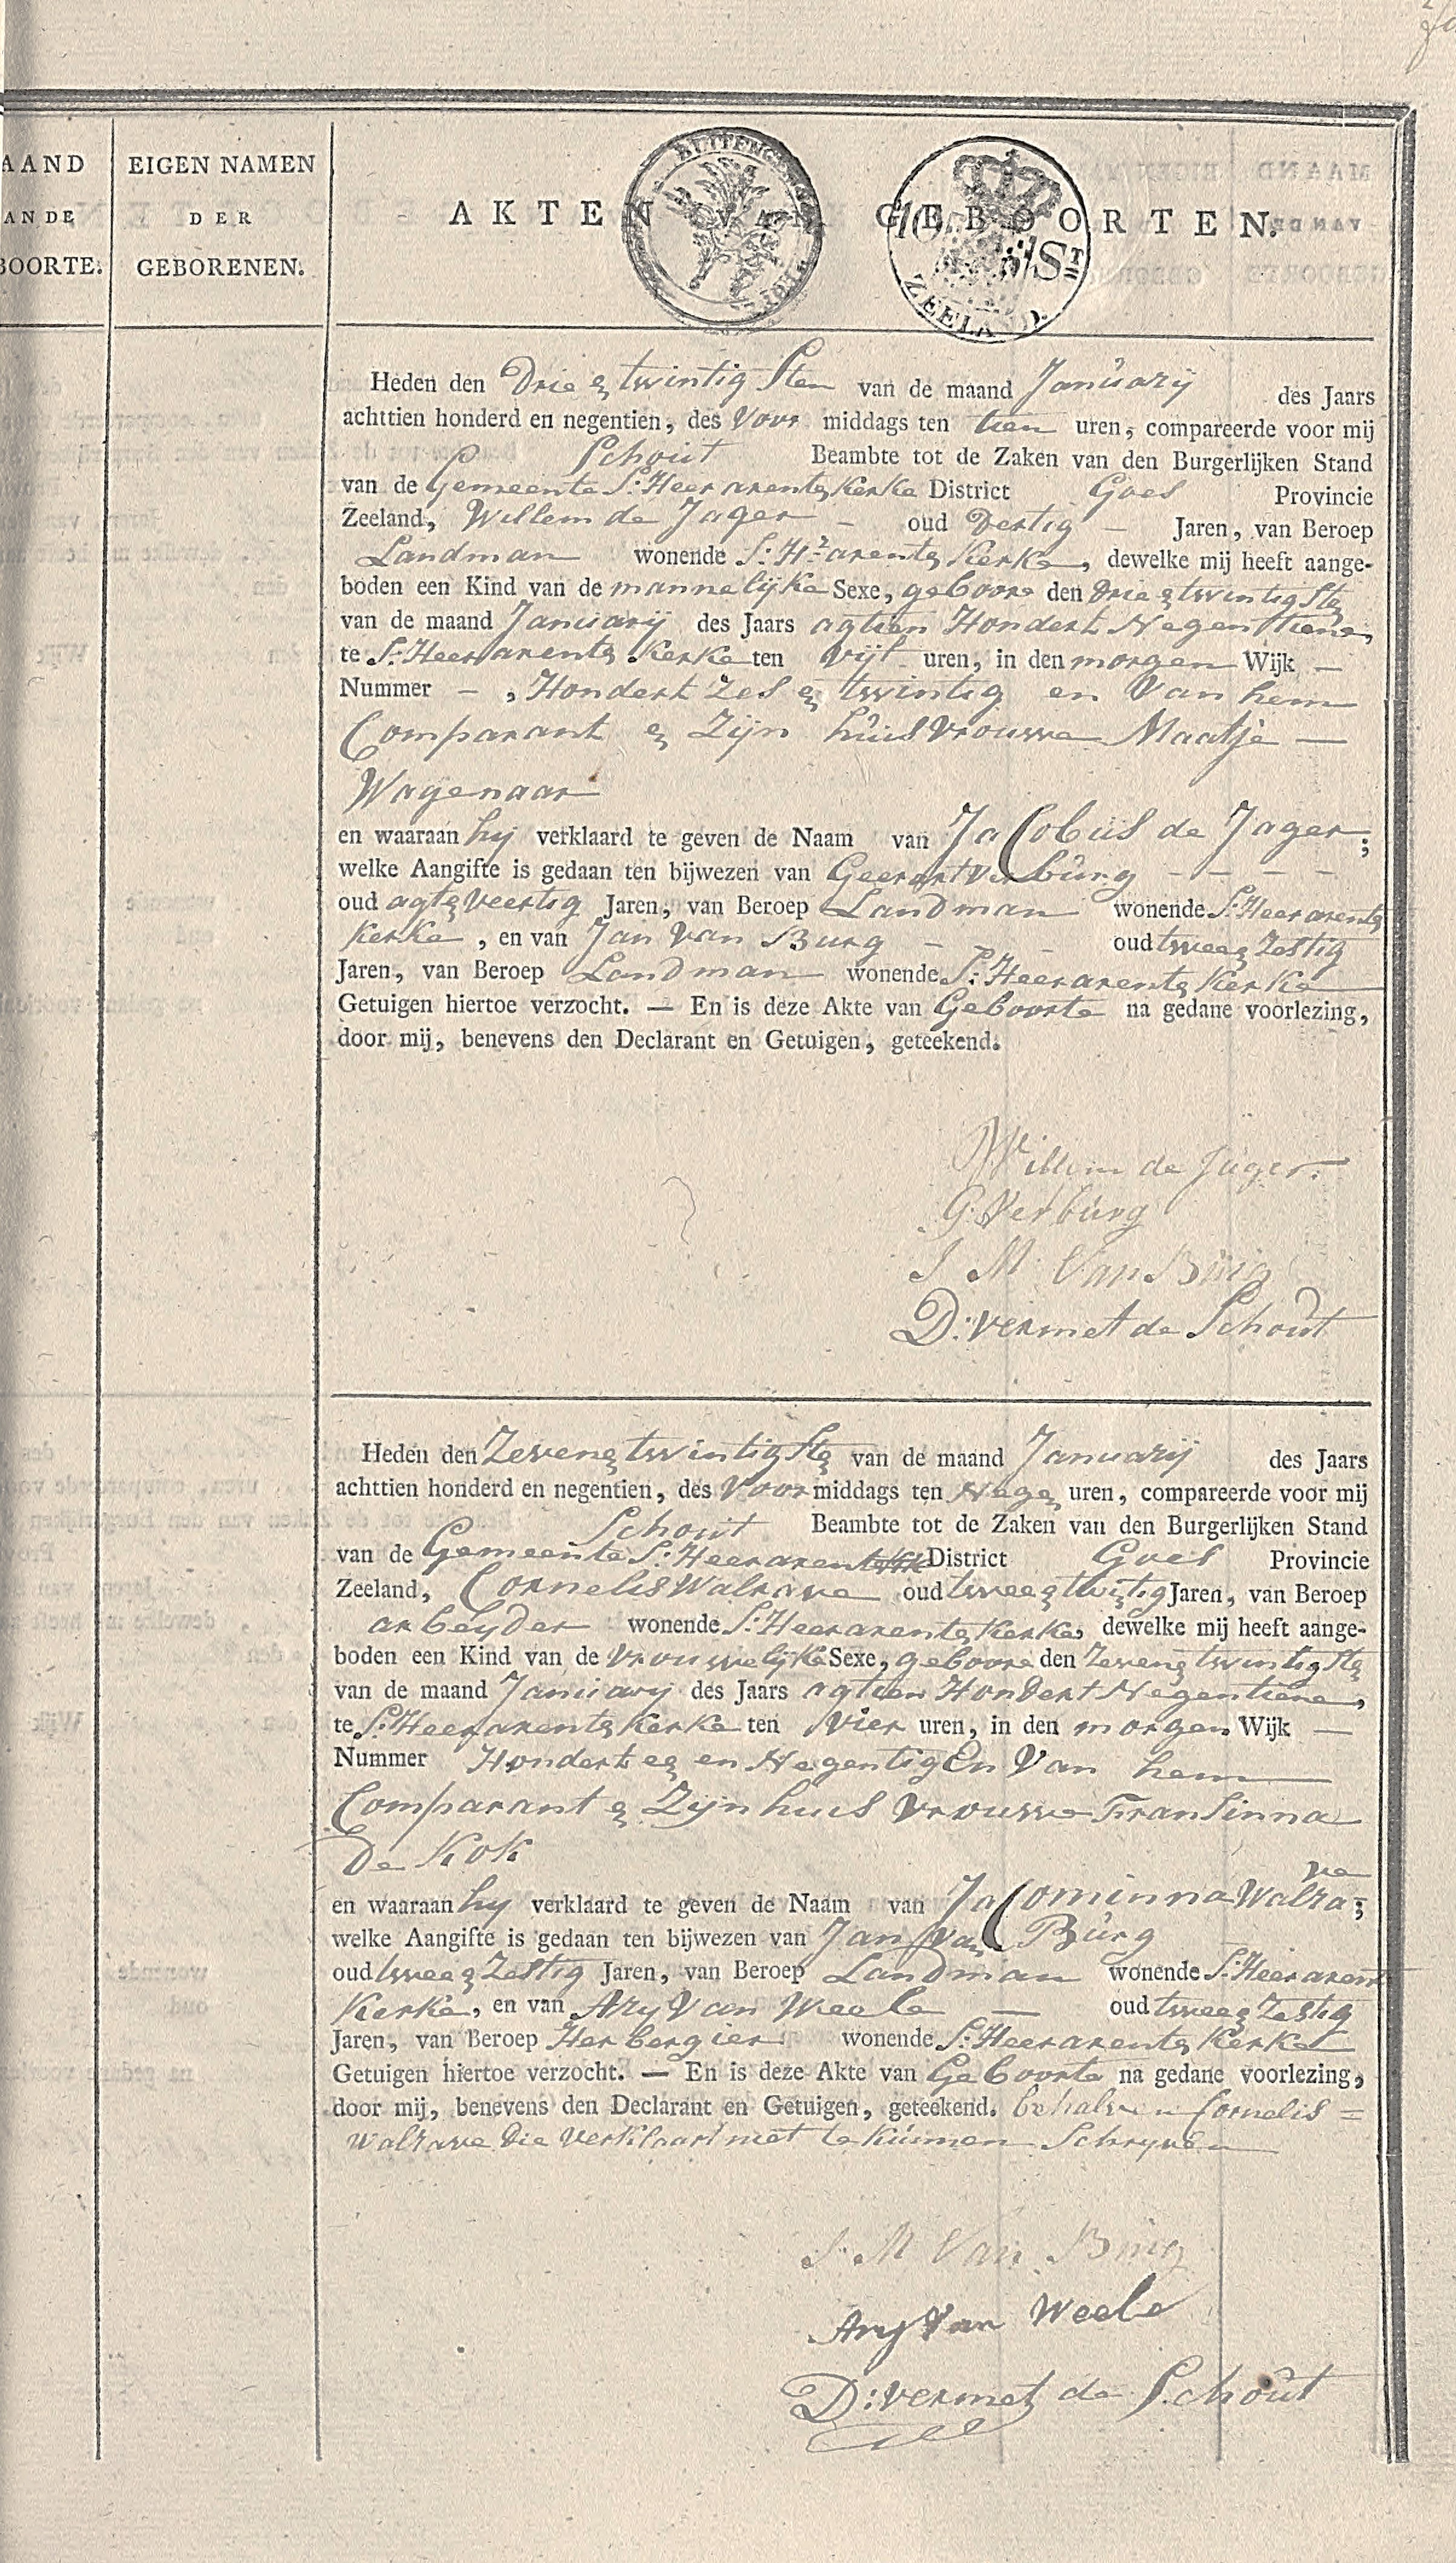 AAND
AN DE
BOORTE.
EIGEN NAMEN
DER
GEBORENEN.
AKTEN VAN GEBOORTEN.
BUITENGEW
10 St
ZEELAND.
Heden den Drie en twintig Sten van de maand Januarij des Jaars
achttien honderd en negentien, des Voor middags ten tien uren, compareerde voor mij
Schout Beambte tot de Zaken van den Burgerlijken Stand
van de Gemeente S: Heer arents Kerke District Goes Provincie
Zeeland, Willem de Jager - oud Dertig - Jaren, van Beroep
Landman wonende S: Hr arents Kerke, dewelke mij heeft aange-
boden een Kind van de mannelijke Sexe, geboore den Drie en twintig Sten
van de maand Januarij des Jaars agtien Hondert Negentiene,
te S: Heer arents Kerke ten vijf uren, in den morgen Wijk -
Nummer - , Hondert Zes en twintig en Van hem
Comparant en Zijn huis Vrouwe Maatje -
Wagenaar
en waaraan hij verklaard te geven de Naam van JaCobus de Jager;
welke Aangifte is gedaan ten bijwezen van Geerart Verburg - - - -
oud agt en Veertig Jaren, van Beroep Landman wonende S: Heer arents
Kerke, en van Jan Van Burg - - oud twee en Zestig
Jaren, van Beroep Landman wonende S: Heer arents Kerke
Getuigen hiertoe verzocht. — En is deze Akte van Geboorte na gedane voorlezing,
door mij, benevens den Declarant en Getuigen, geteekend.
Willem de Jager.
G. Verburg
J M Van Burg
D: vermet de Schout
Heden den Zeven en twintig Sten van de maand Januarij des Jaars
achttien honderd en negentien, des Voor middags ten Negen uren, compareerde voor mij
Schout Beambte tot de Zaken van den Burgerlijken Stand
van de Gemeente S: Heer arents District Goes Provincie
Zeeland, Cornelis Walrave oud twee en twintig Jaren, van Beroep
arbeyder wonende S: Heer arents Kerke, dewelke mij heeft aange-
boden een Kind van de Vrouwelijke Sexe, geboore den Zeven en twintig Sten
van de maand Januarij des Jaars agtien Hondert Negentiene,
te S: Heer arents Kerke ten vier uren, in den morgen Wijk -
Nummer Hondert een en Negentig En Van hem
Comparant en Zijn huis Vrouwe Fransinna
De Kok
en waaraan hij verklaard te geven de Naam van JaCominna Walrave;
welke Aangifte is gedaan ten bijwezen van Jan Van Burg
oud twee en Zestig Jaren, van Beroep Landman wonende S: Heer arents
Kerke, en van Ary Van Weele - oud twee en Zestig
Jaren, van Beroep Herbergier wonende S: Heer arents Kerke
Getuigen hiertoe verzocht. — En is deze Akte van Geboorte na gedane voorlezing,
door mij, benevens den Declarant en Getuigen, geteekend. behalven Cornelis =
Walrave Die Verklaart niet te kunnen Schryven
J. M Van Burg
Ary Van Weele
D: vermet de Schout